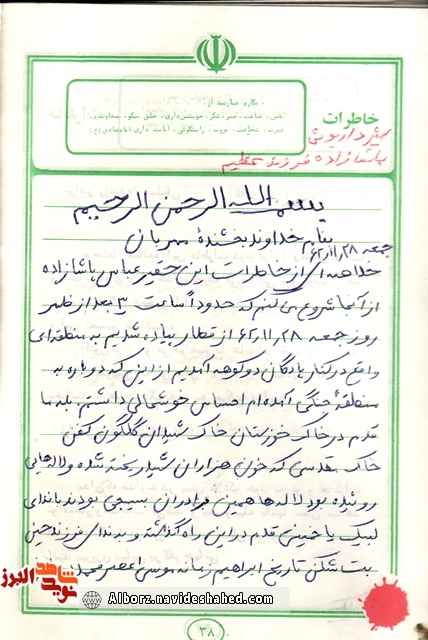 مکارم عبارتند از:
نفس، قناعت، صبر، شکر، خویشتن‌داری، خلق نیکو، سخاوت،
غیرت، شجاعت، مروت، راستگوئی، امانت داری (امام صادق (ع))
خاطرات
پاشا زاده فرزند عظیم
بسم الله الرحمن الرحیم
بنام خداوند بخشندهٔ مهربان
جمعه ۶۲/۱۱/۲۸
خلاصه‌ای از خاطرات این حقیر عباس پاشازاده
از آنجا شروع می‌کنم که حدوداً ساعت ۳ بعد از ظهر
روز جمعه ۶۲/۱۱/۲۸ از قطار پیاده شدیم به منطقه‌ای
واقع در کنار پادگان دوکوهه آمدیم از این که دوباره به
منطقهٔ جنگی آمده‌ام احساس خوشحالی داشتم. بله ما
قدم در خاک خوزستان خاک شهیدان گلگون کفن
خاک مقدسی که خون هزاران شهید ریخته شده و لاله‌هایی
روئیده بود لاله‌ها همین برادران بسیجی بودند با ندای
لبیک یا خمینی قدم در این راه گذاشته و به ندای فرزند حسین
بت شکن تاریخ ابراهیم زمانه موسی عصر محمد
شاهد
نوید
البرز
Alborz.navideshahed.com
۳۸